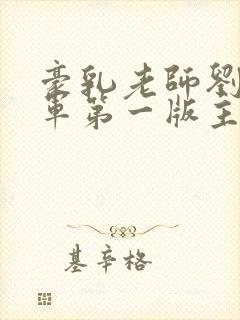 豪乳老師劉
軍第一版主
基辛格